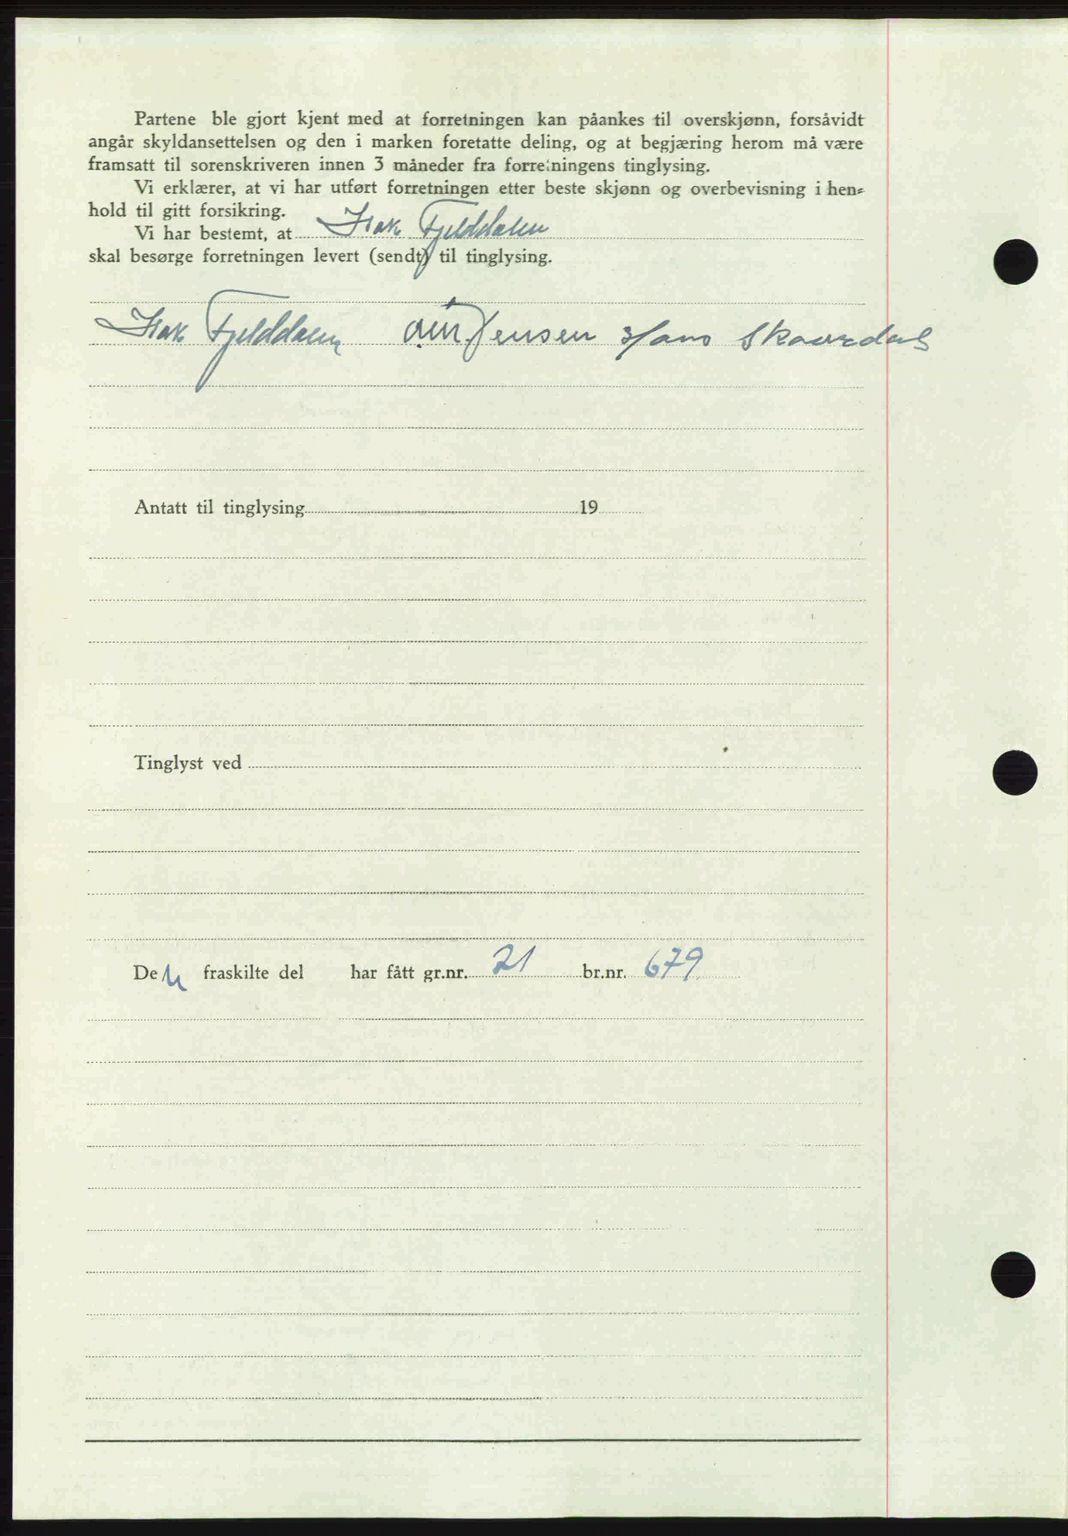 Partene ble gjort kjent med at forretningen kan påankes til overskjønn, forsåvidt
angår skyldansettelsen og den i marken foretatte deling, og at begjæring herom må være
framsatt til sorenskriveren innen 3 måneder fra forretningens tinglysing.
Vi erklærer, at vi har utført forretningen etter beste skjønn og overbevisning i hen-
hold til gitt forsikring.
Vi har bestemt, at Isak Fjelddalen
skal besørge forretningen levert (sendt) til tinglysing.
Isak Fjelddalen Jensen Hans Skaardal
Antatt til tinglysing 19
Tinglyst ved
Den fraskilte del har fått gr.nr. 21 br.nr. 679